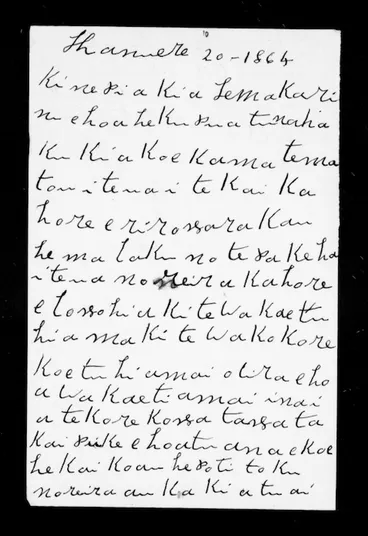 Hanuere 20-1864
Ki nepia Kia te Makarini
e hoa he Kupu atu naha
Ku Kia Koe Kamatema
tou i tena i te Kai Ka
hore e riro mara Kau
he ma taku no te pakeha
i tena no reira Kahore
e hohia Ki te Wakaetu
hia ma Ki te Wakokore
Koe tu hia mai otira eho
a Wakaetia mai inai
a te Kore Kowa tawata
Kai puke e hoatu ana e Koe
he Kai Koau he poti to Ku
noreira au Ka Ki atu ai